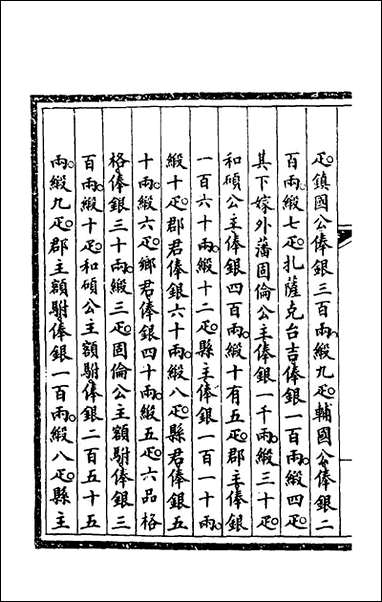 疋鎮國公俸銀三百兩緞九疋輔國公俸銀二
百兩緞七疋扎薩克台吉俸銀一百兩緞四疋
其下嫁外藩固倫公主俸銀一千兩緞三十疋
和碩公主俸銀四百兩緞十有五疋郡主俸銀
一百六十兩緞十二疋縣主俸銀一百一十兩
緞十疋郡君俸銀六十兩緞八疋縣君俸銀五
十兩緞六疋鄉君俸銀四十兩緞五疋六品格
格俸銀三十兩緞三疋固倫公主額駙俸銀三
百兩緞十疋和碩公主額駙俸銀二百五十五
兩緞九疋郡主額駙俸銀一百兩緞八疋縣主